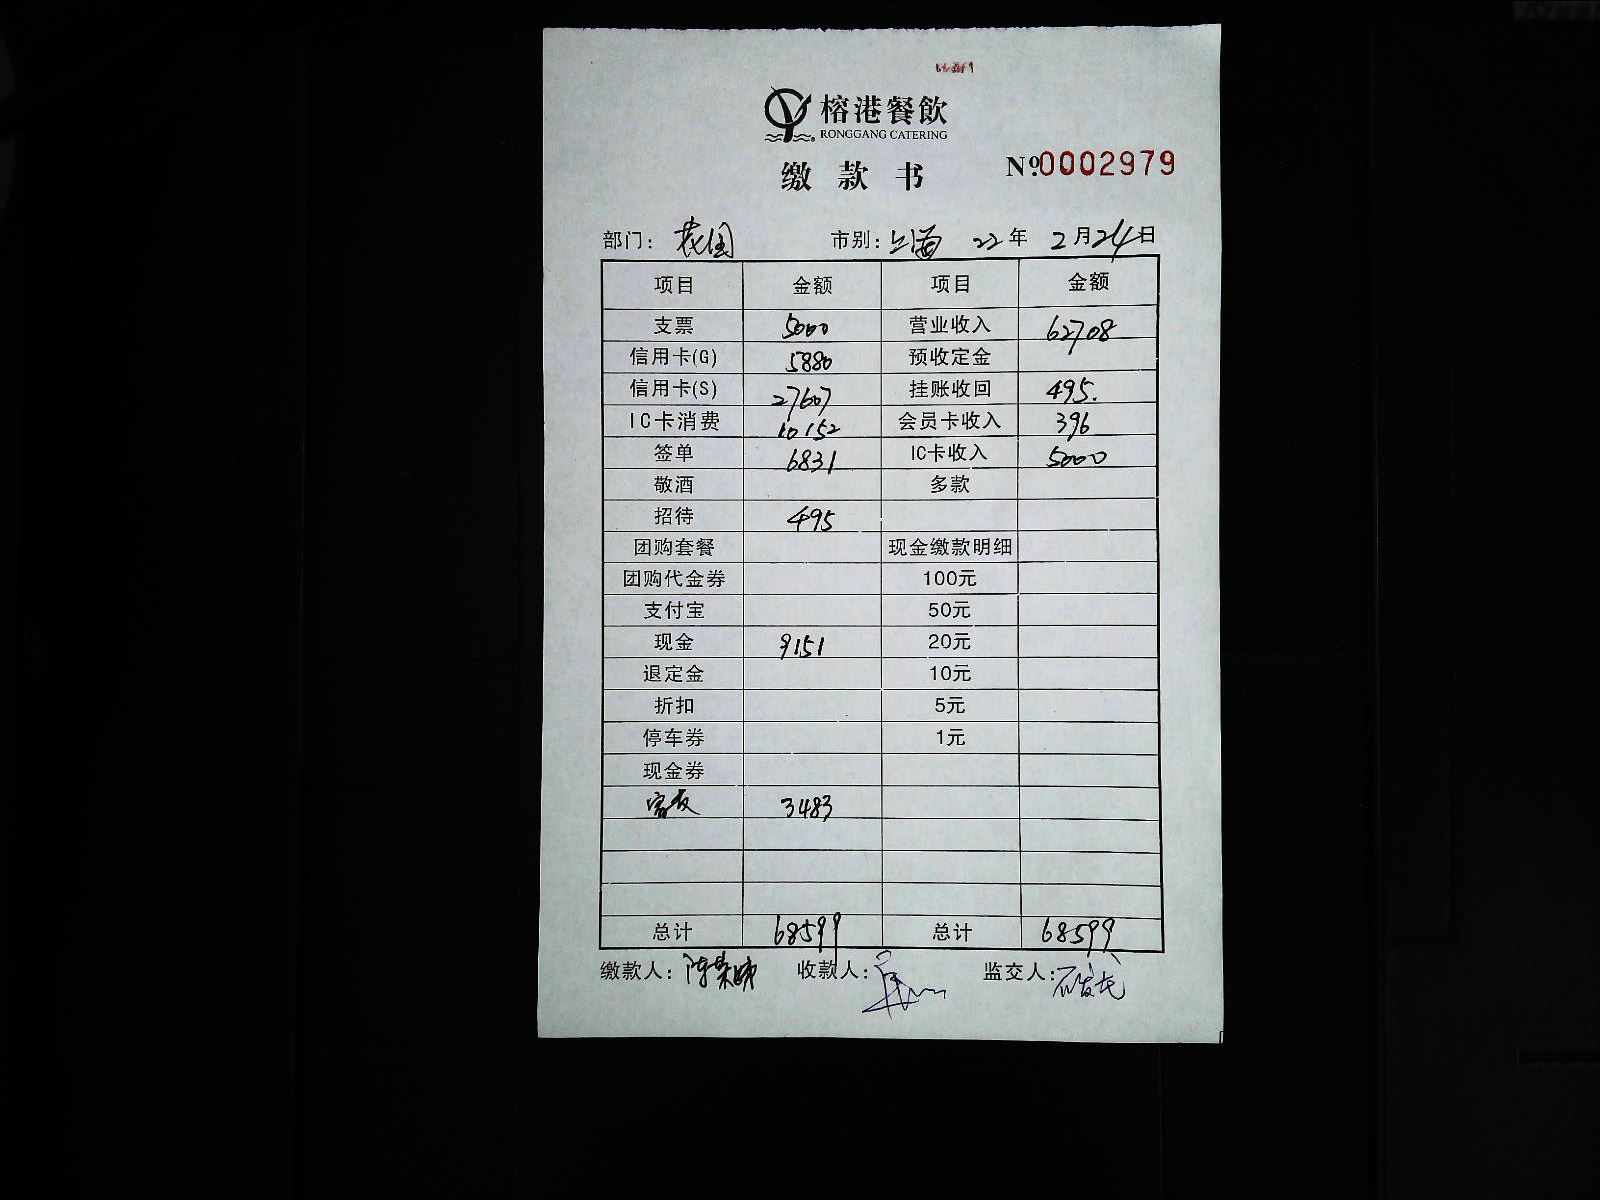 榕港餐飲
RONGGANG CATERING
缴款书 №0002979
部门: 花园 市别: 上海 22年 2月24日
项目 金额 项目 金额
支票 5000 营业收入 62708
信用卡(G) 5880 预收定金
信用卡(S) 27607 挂账收回 495.
IC卡消费 10152 会员卡收入 396
签单 6831 IC卡收入 5000
敬酒 多款
招待 495
团购套餐 现金缴款明细
团购代金券 100元
支付宝 50元
现金 9151 20元
退定金 10元
折扣 5元
停车券 1元
现金券
3483
总计 68599 总计 68599
缴款人: 收款人: 监交人: